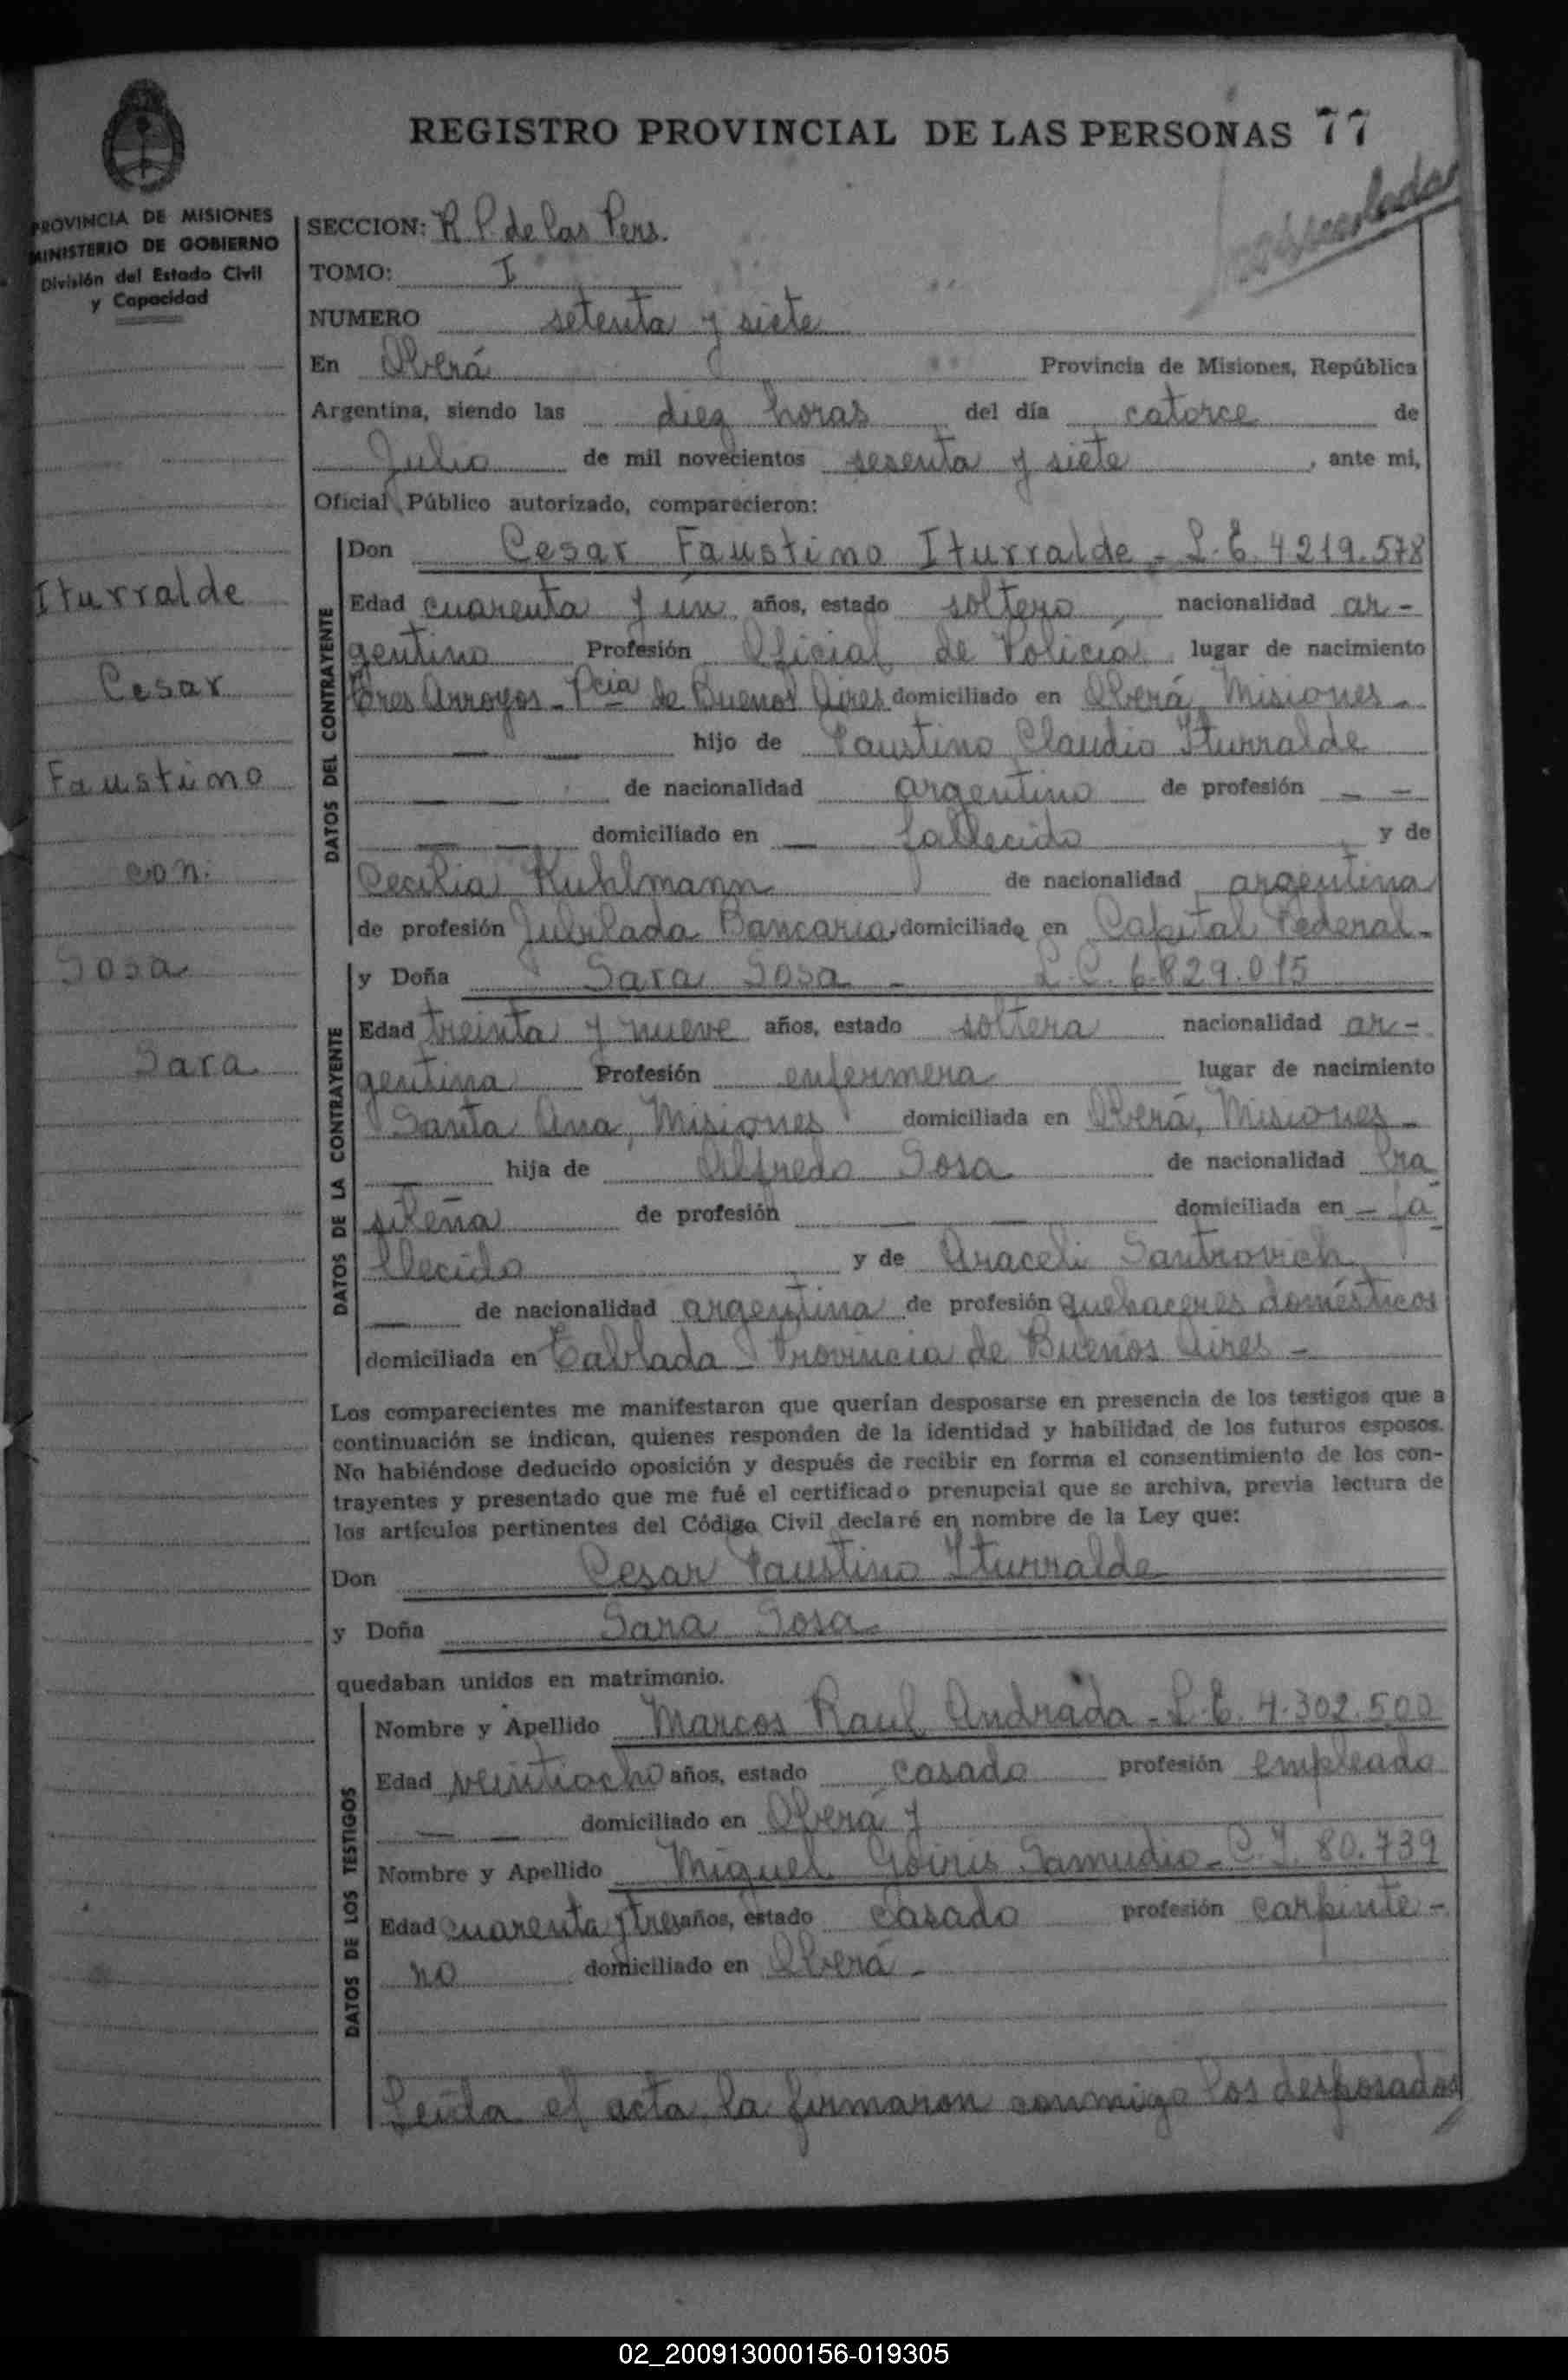 REGISTRO PROVINCIAL DE LAS PERSONAS 77
PROVINCIA DE MISIONES
MINISTERIO DE GOBIERNO
División del Estado Civil
y Capacidad
SECCION: R. P. de las Pers.
TOMO: I
NUMERO setenta y siete
En Oberá Provincia de Misiones, República
Argentina, siendo las diez horas del día catorce de
Julio de mil novecientos sesenta y siete, ante mi,
Oficial Público autorizado, comparecieron:
Iturralde
Cesar
Faustino
con
Sosa
Sara
DATOS DEL CONTRAYENTE
Don Cesar Faustino Iturralde - L.E. 4219.578
Edad cuarenta y un años, estado soltero nacionalidad ar-
gentino Profesión Oficial de Policía lugar de nacimiento
Tres Arroyos - Pcia de Buenos Aires domiciliado en Oberá, Misiones -
hijo de Faustino Claudio Iturralde
de nacionalidad argentino de profesión — —
— — domiciliado en — fallecido y de
Cecilia Kuhlmann de nacionalidad argentina
de profesión Jubilada Bancaria, domiciliado en Capital Federal -
DATOS DE LA CONTRAYENTE
y Doña Sara Sosa - L.C. 6.829.015
Edad treinta y nueve años, estado soltera nacionalidad ar-
gentina Profesión enfermera lugar de nacimiento
Santa Ana, Misiones domiciliada en Oberá, Misiones -
— hija de Alfredo Sosa de nacionalidad bra
sileña de profesión — — domiciliada en — fa-
llecido y de Araceli Santrovich
— de nacionalidad argentina de profesión quehaceres domésticos
domiciliada en Tablada - Provincia de Buenos Aires -
Los comparecientes me manifestaron que querían desposarse en presencia de los testigos que a
continuación se indican, quienes responden de la identidad y habilidad de los futuros esposos.
No habiéndose deducido oposición y después de recibir en forma el consentimiento de los con-
trayentes y presentado que me fué el certificado prenupcial que se archiva, previa lectura de
los artículos pertinentes del Código Civil declaré en nombre de la Ley que:
Don Cesar Faustino Iturralde
y Doña Sara Sosa
quedaban unidos en matrimonio.
DATOS DE LOS TESTIGOS
Nombre y Apellido Marcos Raul Andrada - L.E. 4.302.500
Edad veintiocho años, estado casado profesión empleado
— — domiciliado en Oberá y
Nombre y Apellido Miguel Goiris Samudio - C.I. 80.739
Edad cuarenta y tres años, estado casado profesión carpinte-
ro domiciliado en Oberá -
Leída el acta, la firmaron conmigo los desposados
02_200913000156-019305